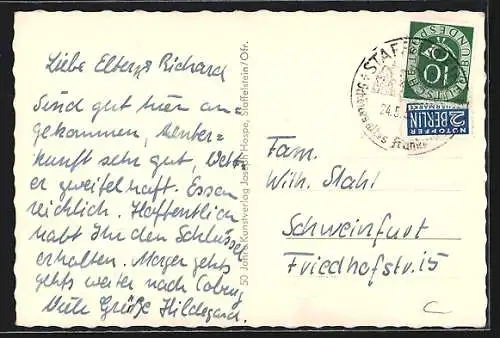 Liebe Eltern u Richard
Sind gut hier an-
gekommen, Unter-
kunft sehr gut, Wett-
er zweifelhaft. Essen
reichlich. Hoffentlich
habt Ihr den Schlüssel
erhalten. Morgen gehts
gehts weiter nach Coburg
Viele Grüße Hildegard.
50 Jahre Kunstverlag Joseph Hospe, Staffelstein/Ofr.
STAF
24.5
10
DEUTSCHE BUNDESPOST
NOTOPFER
2 BERLIN
STEUERMARKE
Fam.
Wilh. Stahl
Schweinfurt
Friedhofstr. 15